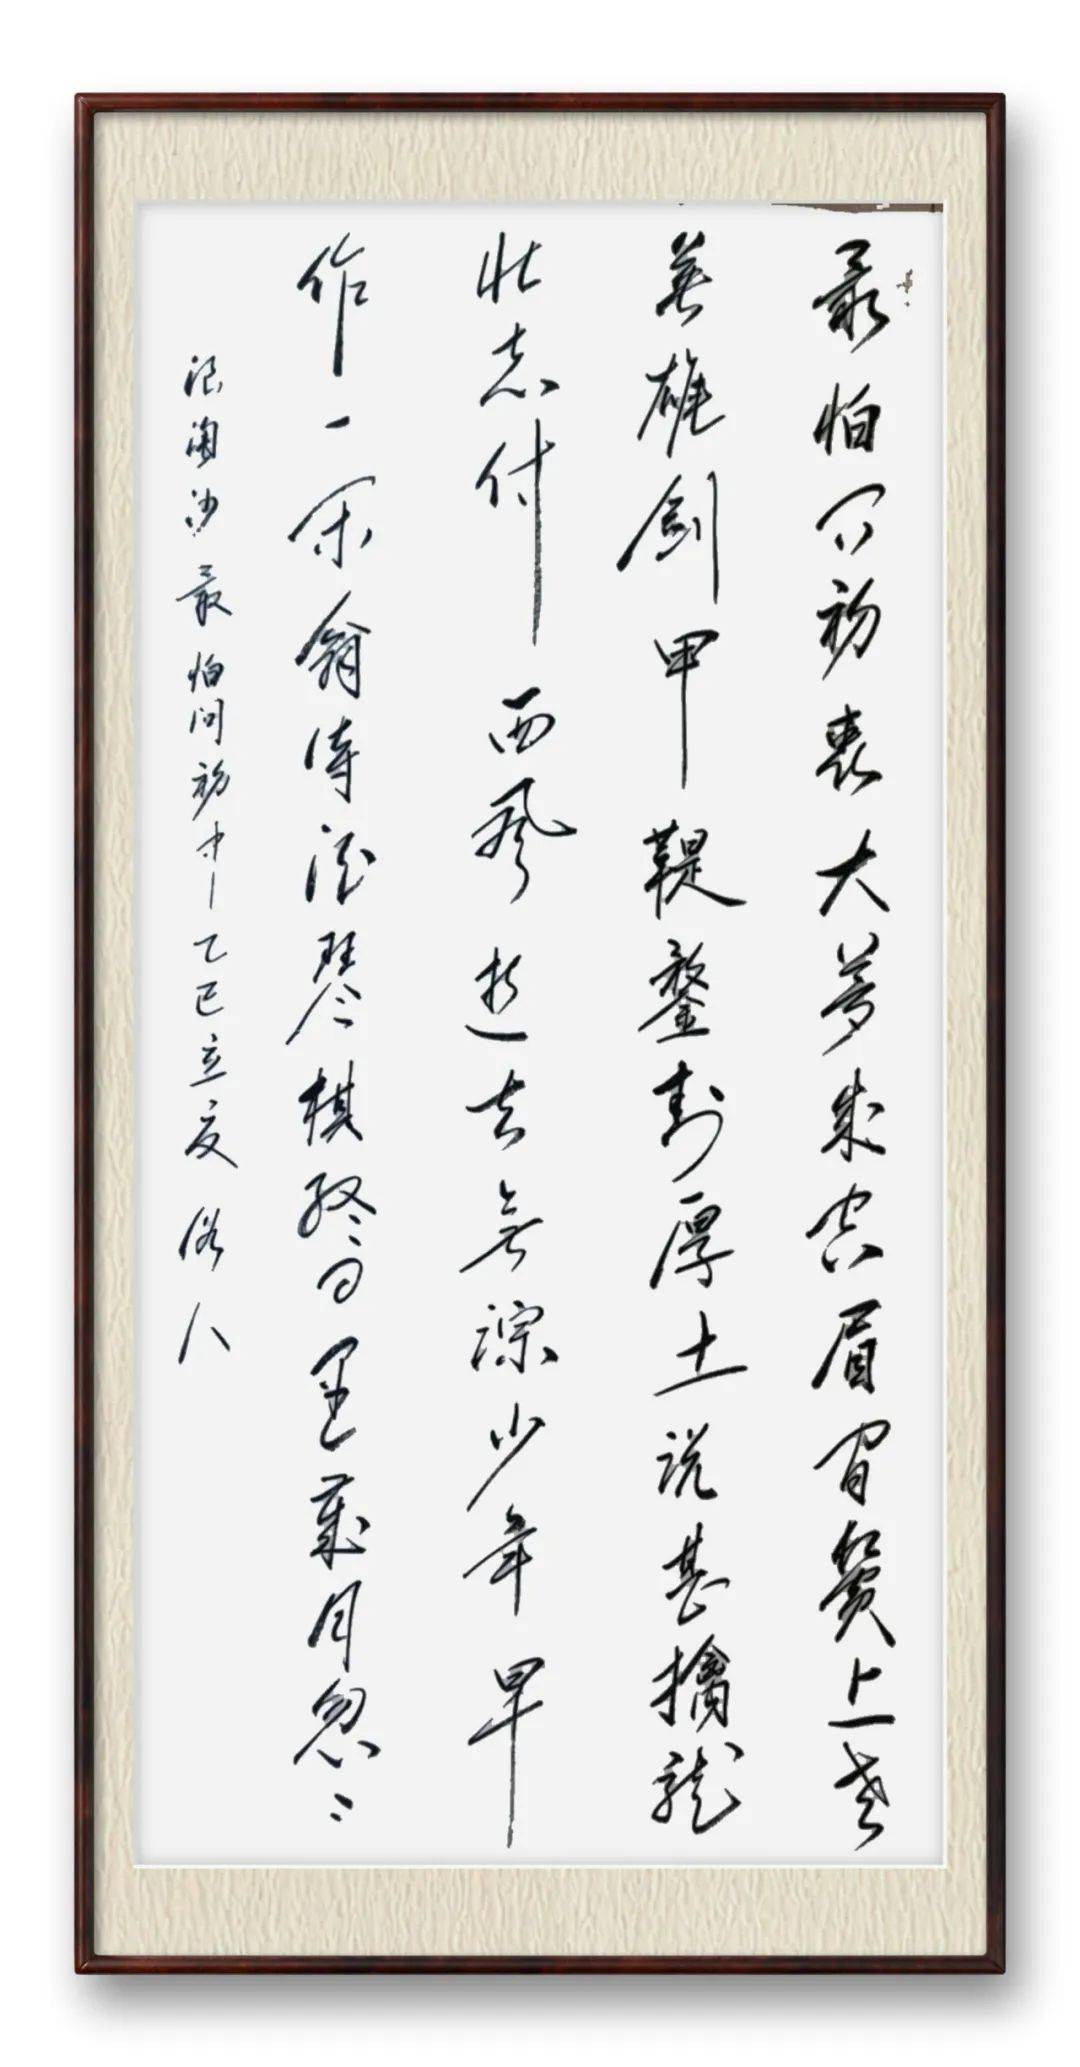 最怕问初衷大梦成空眉间鬓上老
英雄剑甲鞮鍪封厚土说甚擒龙
壮志付西风逝去无踪少年早
作一闲翁诗酒琴棋终日里岁月忽忽
浪淘沙 最怕问初衷 乙巳立夏 俗人